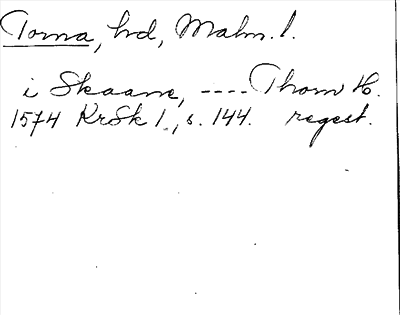 Torna, hd, Malm. l.
i Skaane, ---- Thom H.
1574 KrSk 1., s. 144. regest.